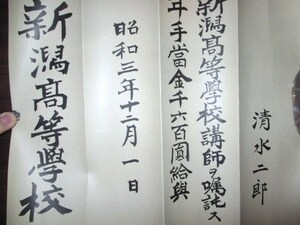 清水二郎
新潟高等學校講師ヲ嘱託ス
年手當金千六百圓給與
昭和三年十二月一日
新潟高等學校